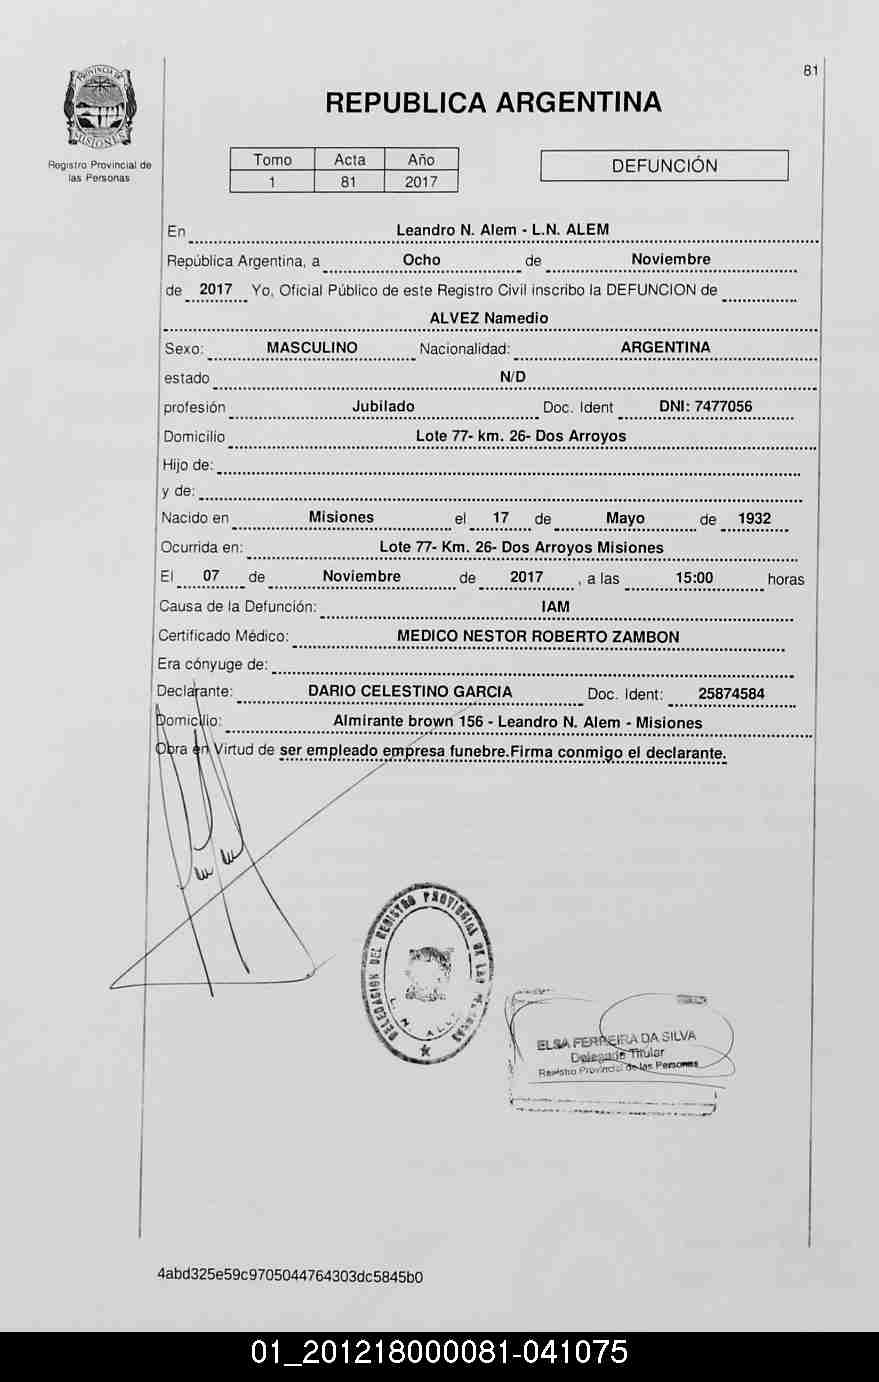 81
PROVINCIA DE
MISIONES
Registro Provincial de
las Personas
REPUBLICA ARGENTINA
Tomo Acta Año
1 81 2017
DEFUNCIÓN
En Leandro N. Alem - L.N. ALEM
República Argentina, a Ocho de Noviembre
de 2017 Yo, Oficial Público de este Registro Civil inscribo la DEFUNCION de
ALVEZ Namedio
Sexo: MASCULINO Nacionalidad: ARGENTINA
estado N/D
profesión Jubilado Doc. Ident DNI: 7477056
Domicilio Lote 77- km. 26- Dos Arroyos
Hijo de:
y de:
Nacido en Misiones el 17 de Mayo de 1932
Ocurrida en: Lote 77- Km. 26- Dos Arroyos Misiones
El 07 de Noviembre de 2017 , a las 15:00 horas
Causa de la Defunción: IAM
Certificado Médico: MEDICO NESTOR ROBERTO ZAMBON
Era cónyuge de:
Declarante: DARIO CELESTINO GARCIA Doc. Ident: 25874584
Domicilio: Almirante brown 156 - Leandro N. Alem - Misiones
Obra en Virtud de ser empleado empresa funebre.Firma conmigo el declarante.
DELEGACION DEL REGISTRO PROVINCIAL DE LAS PERSONAS
L. N. ALEM
ELSA FERREIRA DA SILVA
Delegada Titular
Registro Provincial de las Personas
4abd325e59c9705044764303dc5845b0
01_201218000081-041075